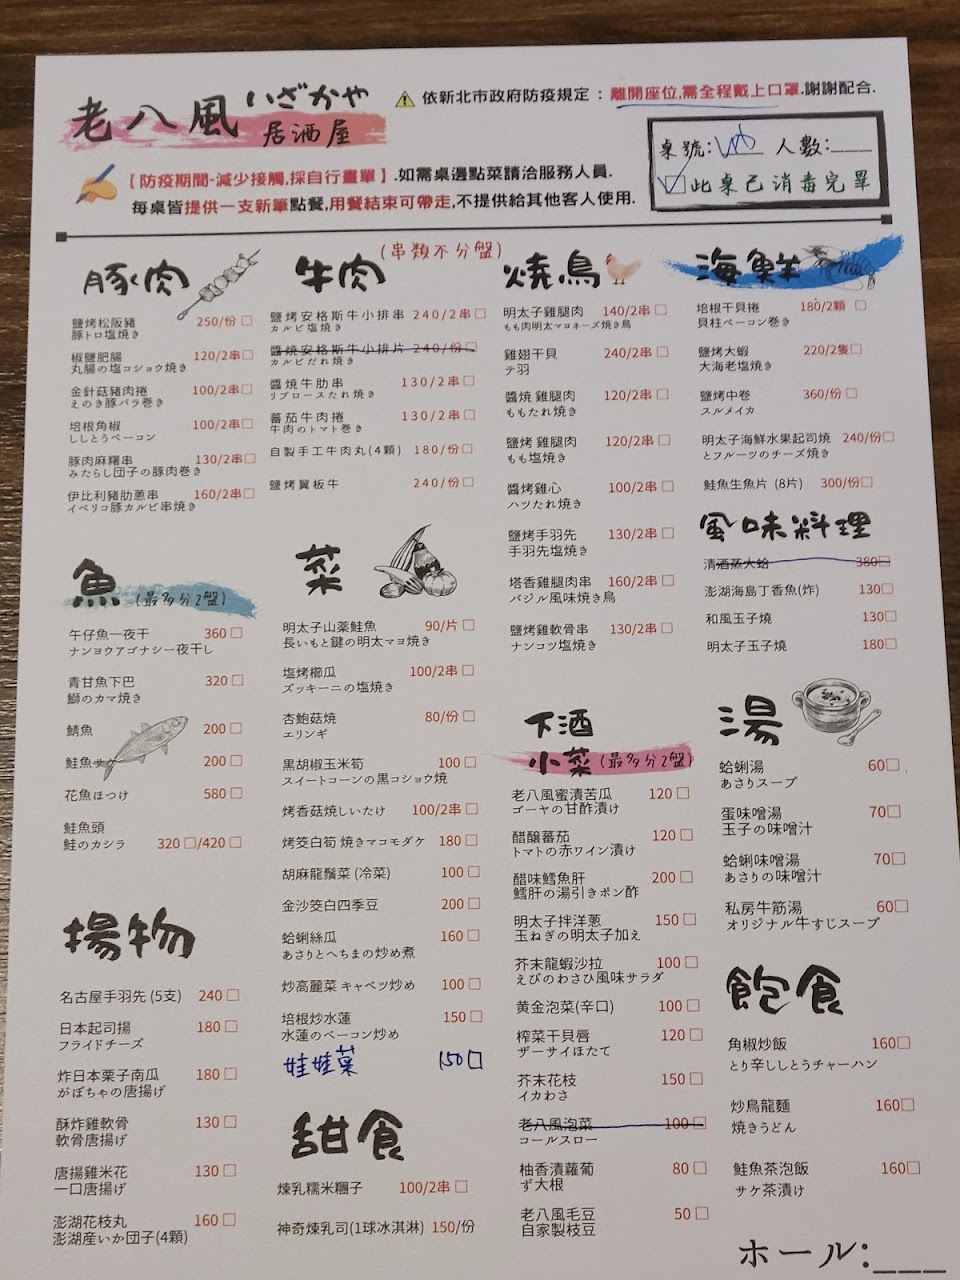 老八風 いざかや 居酒屋
依新北市政府防疫規定：離開座位,需全程戴上口罩.謝謝配合.
桌號: 人數:___
此桌已消毒完畢
【防疫期間-減少接觸,採自行畫單】.如需桌邊點菜請洽服務人員.
每桌皆提供一支新筆點餐,用餐結束可帶走,不提供給其他客人使用.
(串類不分盤)
豚肉
鹽烤松阪豬 250/份□
豚トロ塩焼き
椒鹽肥腸 120/2串□
丸腸の塩コショウ焼き
金針菇豬肉捲 100/2串□
えのき豚バラ巻き
培根角椒 100/2串□
ししとうベーコン
豚肉麻糬串 130/2串□
みたらし団子の豚肉巻き
伊比利豬肋蔥串 160/2串□
イベリコ豚カルビ串焼き
牛肉
鹽烤安格斯牛小排串 240/2串□
カルビ塩焼き
醬燒安格斯牛小排片 240/份□
カルビだれ焼き
醬燒牛肋串 130/2串□
リブロースたれ焼き
蕃茄牛肉捲 130/2串□
牛肉のトマト巻き
自製手工牛肉丸(4顆) 180/份□
鹽烤翼板牛 240/份□
燒鳥
明太子雞腿肉 140/2串□
もも肉明太マヨネーズ焼き鳥
雞翅干貝 240/2串□
テ羽
醬燒 雞腿肉 120/2串□
ももたれ焼き
鹽烤 雞腿肉 120/2串□
もも塩焼き
醬烤雞心 100/2串□
ハツたれ焼き
鹽烤手羽先 130/2串□
手羽先塩焼き
塔香雞腿肉串 160/2串□
バジル風味焼き鳥
鹽烤雞軟骨串 130/2串□
ナンコツ塩焼き
海鮮
培根干貝捲 180/2顆 □
貝柱ベーコン巻き
鹽烤大蝦 220/2隻□
大海老塩焼き
鹽烤中卷 360/份 □
スルメイカ
明太子海鮮水果起司燒 240/份□
とフルーツのチーズ焼き
鮭魚生魚片 (8片) 300/份□
風味料理
清酒蒸大蛤 380□
澎湖海島丁香魚(炸) 130□
和風玉子燒 130□
明太子玉子燒 180□
魚 (最多分2盤)
午仔魚一夜干 360 □
ナンヨウアゴナシ一夜干し
青甘魚下巴 320 □
鰤のカマ焼き
鯖魚 200 □
鮭魚サケ 200 □
花魚ほつけ 580 □
鮭魚頭
鮭のカシラ 320 □/420 □
菜
明太子山薬鮭魚 90/片 □
長いもと鍵の明太マヨ焼き
塩烤櫛瓜 100/2串 □
ズッキーニの塩焼き
杏鮑菇燒 80/份 □
エリンギ
黒胡椒玉米筍 100 □
スイートコーンの黒コショウ焼
烤香菇燒しいたけ 100/2串 □
烤筊白筍 焼きマコモダケ 180 □
胡麻龍鬚菜 (冷菜) 100 □
金沙筊白四季豆 200 □
蛤蜊絲瓜 160 □
あさりとへちまの炒め煮
炒高麗菜 キャベツ炒め 100 □
培根炒水蓮 150 □
水蓮のベーコン炒め
娃娃菜 150□
下酒
小菜 (最多分2盤)
老八風蜜漬苦瓜 120 □
ゴーヤの甘酢漬け
醋釀蕃茄 120 □
トマトの赤ワイン漬け
醋味鱈魚肝 200 □
鱈肝の湯引きポン酢
明太子拌洋蔥 150 □
玉ねぎの明太子加え
芥末龍蝦沙拉 100 □
えびのわさび風味サラダ
黄金泡菜(辛口) 100 □
榨菜干貝唇 120 □
ザーサイほたて
芥末花枝 150 □
イカわさ
老八風泡菜 100 □
コールスロー
柚香漬蘿蔔 80 □
ず大根
老八風毛豆 50 □
自家製枝豆
湯
蛤蜊湯 60□
あさりスープ
蛋味噌湯 70□
玉子の味噌汁
蛤蜊味噌湯 70□
あさりの味噌汁
私房牛筋湯 60□
オリジナル牛すじスープ
揚物
名古屋手羽先 (5支) 240 □
日本起司揚 180 □
フライドチーズ
炸日本栗子南瓜 180 □
がぼちゃの唐揚げ
酥炸雞軟骨 130 □
軟骨唐揚げ
唐揚雞米花 130 □
一口唐揚げ
澎湖花枝丸 160 □
澎湖産いか団子(4顆)
甜食
煉乳糯米糰子 100/2串 □
神奇煉乳司(1球冰淇淋) 150/份
飽食
角椒炒飯 160□
とり辛ししとうチャーハン
炒烏龍麵 160□
焼きうどん
鮭魚茶泡飯 160□
サケ茶漬け
ホール:___